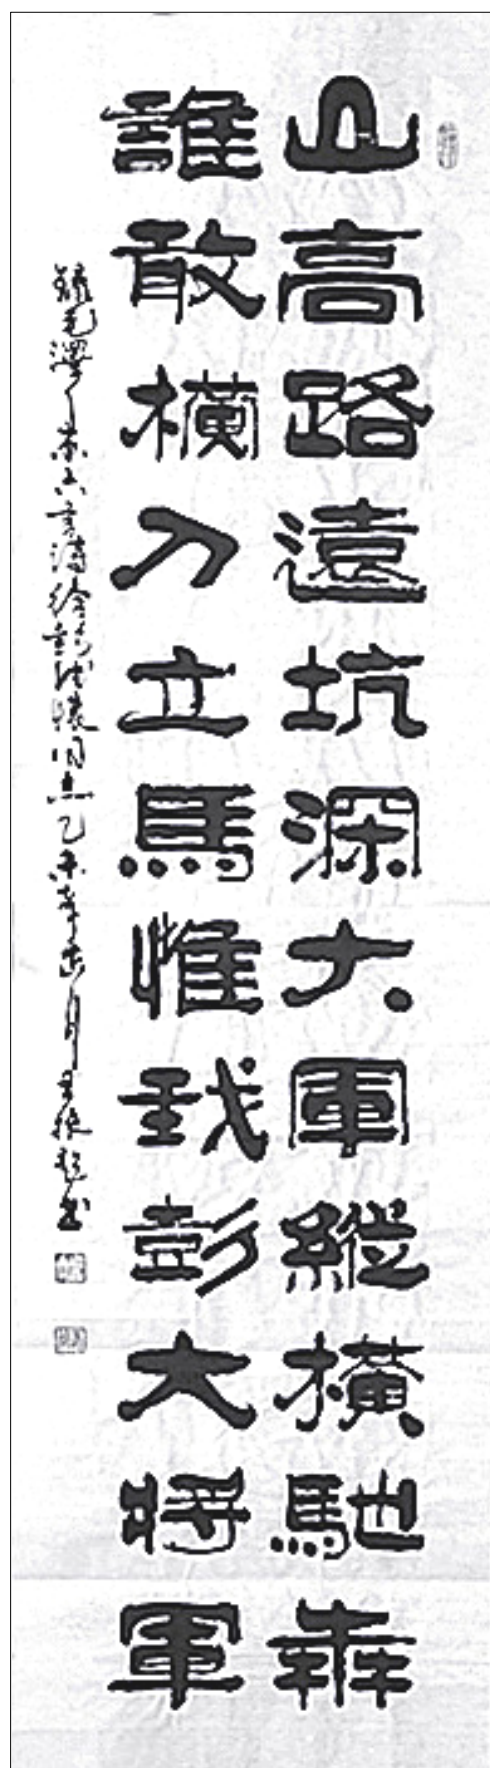 山高路遠坑深大軍縱橫馳奔
誰敢橫刀立馬惟我彭大將軍
錄毛澤東六言詩給彭德懷同志乙未年 月王振 書